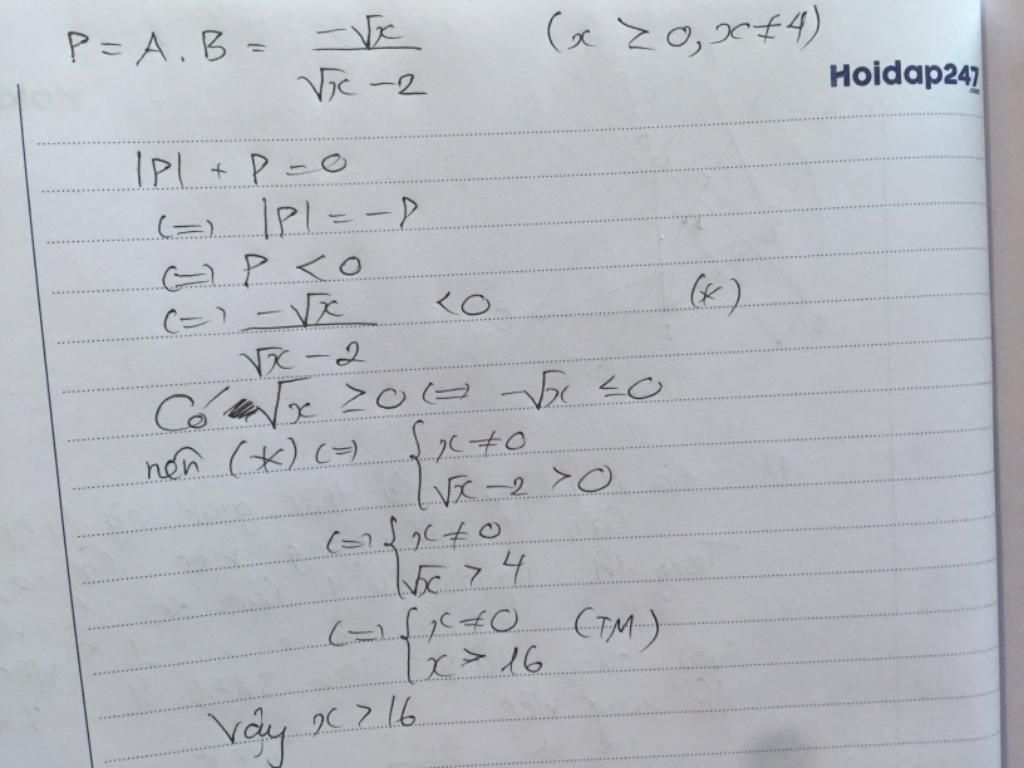 P = A . B = -√x / (√x - 2) (x ≥ 0, x ≠ 4)
Hoidap247.com
|P| + P = 0
<=> |P| = -P
<=> P < 0
<=> -√x / (√x - 2) < 0 (*)
Có √x ≥ 0 <=> -√x ≤ 0
nên (*) <=> { x ≠ 0
√x - 2 > 0
<=> { x ≠ 0
√x > 4
<=> { x ≠ 0 (TM)
x > 16
Vậy x > 16